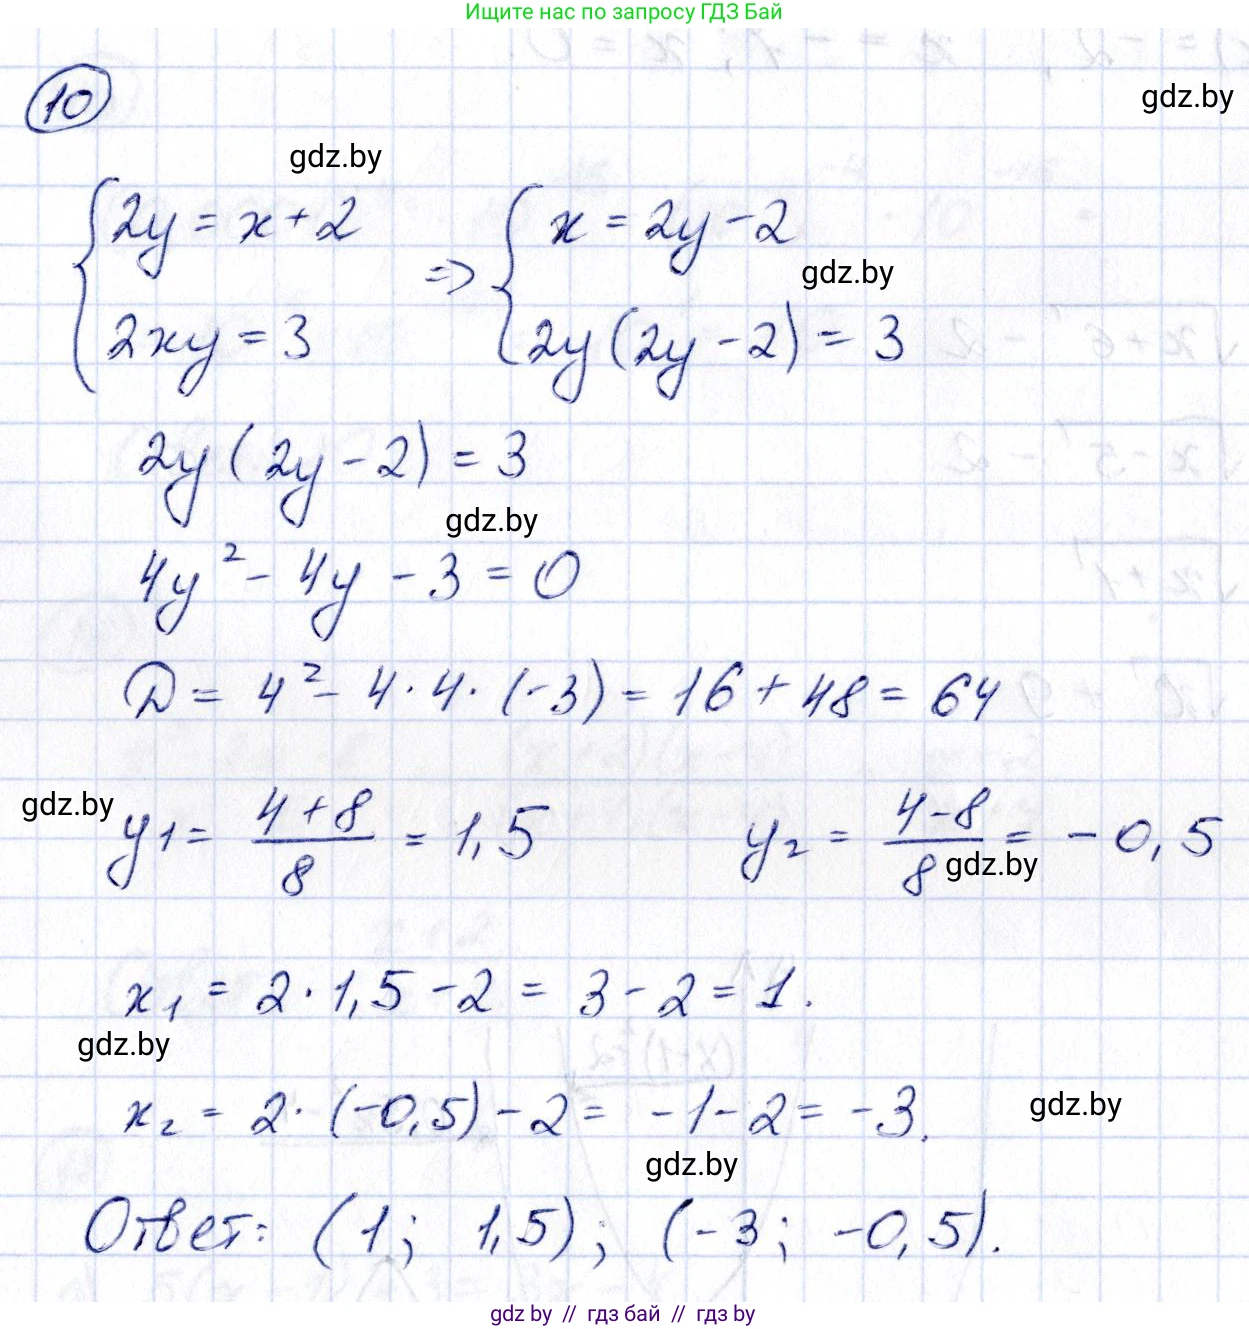 Ищите нас по запросу ГДЗ Бай
10
gdz.by
gdz.by
2y = x + 2
=> x = 2y - 2
gdz.by
2xy = 3
2y(2y - 2) = 3
2y(2y - 2) = 3
gdz.by
4y² - 4y - 3 = 0
D = 4² - 4 · 4 · (-3) = 16 + 48 = 64
gdz.by
y1 = (4 + 8)/8 = 1,5
y2 = (4 - 8)/8 = -0,5
gdz.by
x1 = 2 · 1,5 - 2 = 3 - 2 = 1.
gdz.by
x2 = 2 · (-0,5) - 2 = -1 - 2 = -3.
gdz.by
gdz.by
Ответ: (1; 1,5); (-3; -0,5).
gdz by // гдз бай // гдз by